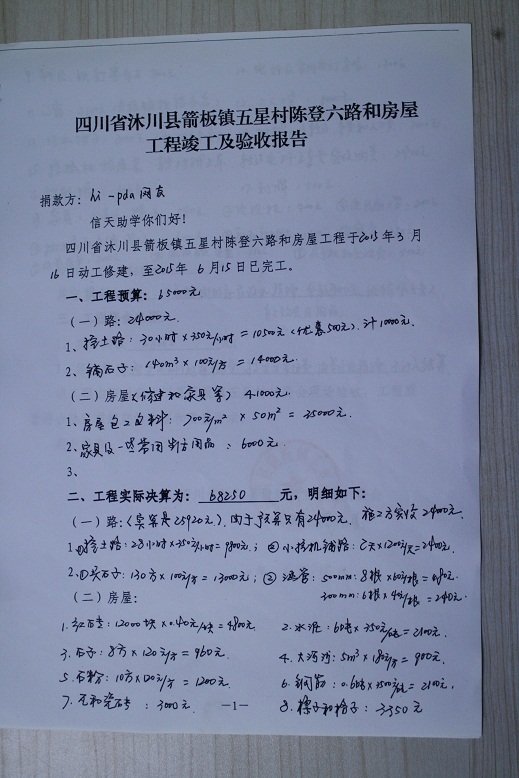 四川省沐川县箭板镇五星村陈登六路和房屋
工程竣工及验收报告
捐款方：hi-pda网友
信天助学你们好！
四川省沐川县箭板镇五星村陈登六路和房屋工程于2015年3月
16日动工修建，至2015年 6月15日已完工。
一、工程预算：65000元
（一）路：24000元
1、挖土路：30小时×350元/小时=10500元（优惠500元）.计1000元.
2、铺石子：140m³×100元/方=14000元
（二）房屋（修建和家具等）41000元
1、房屋包工包料：700元/m²×50m²=35000元
2、家具及一些常用 用品：6000元
3、
二、工程实际决算为：68250元，明细如下：
（一）路：（决算是25920元）.由于预算只有24000元. 施工方实收24000元.
1.①挖土路：28小时×350元/小时=9800元；②小挖机铺路：2天×1200元/天=2400元.
2.①买石子：130方×100元/方=13000元；②涵管：500mm：8根×60元/根=480元.
300mm：6根×40元/根=240元.
（二）房屋：
1.红砖：12000块×0.40元/块=4800元.
2.水泥：6吨×350元/吨=2100元.
3.石子：8方×120元/方=960元.
4.大河沙：5m³×180元/方=900元.
5.石粉：10方×120元/方=1200元.
6.钢筋：0.6吨×3500元/吨=2100元.
7.瓦和瓷砖：3000元.
8.檩子和桷子：3350元
-1-